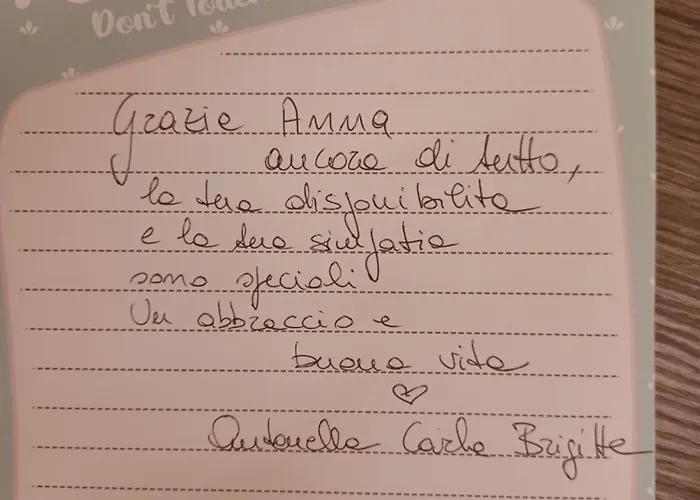 Don't Touch
Grazie Anna
ancora di tutto,
la tua disponibilita
e la tua simpatia
sono speciali
Un abbraccio e
buona vita
♡
Antonella Carla Brigitte